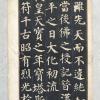 雖先天而不違純
當後佛之授記昔
平之日大化初流
皇天寶之年寶塔
符千古昭有烈